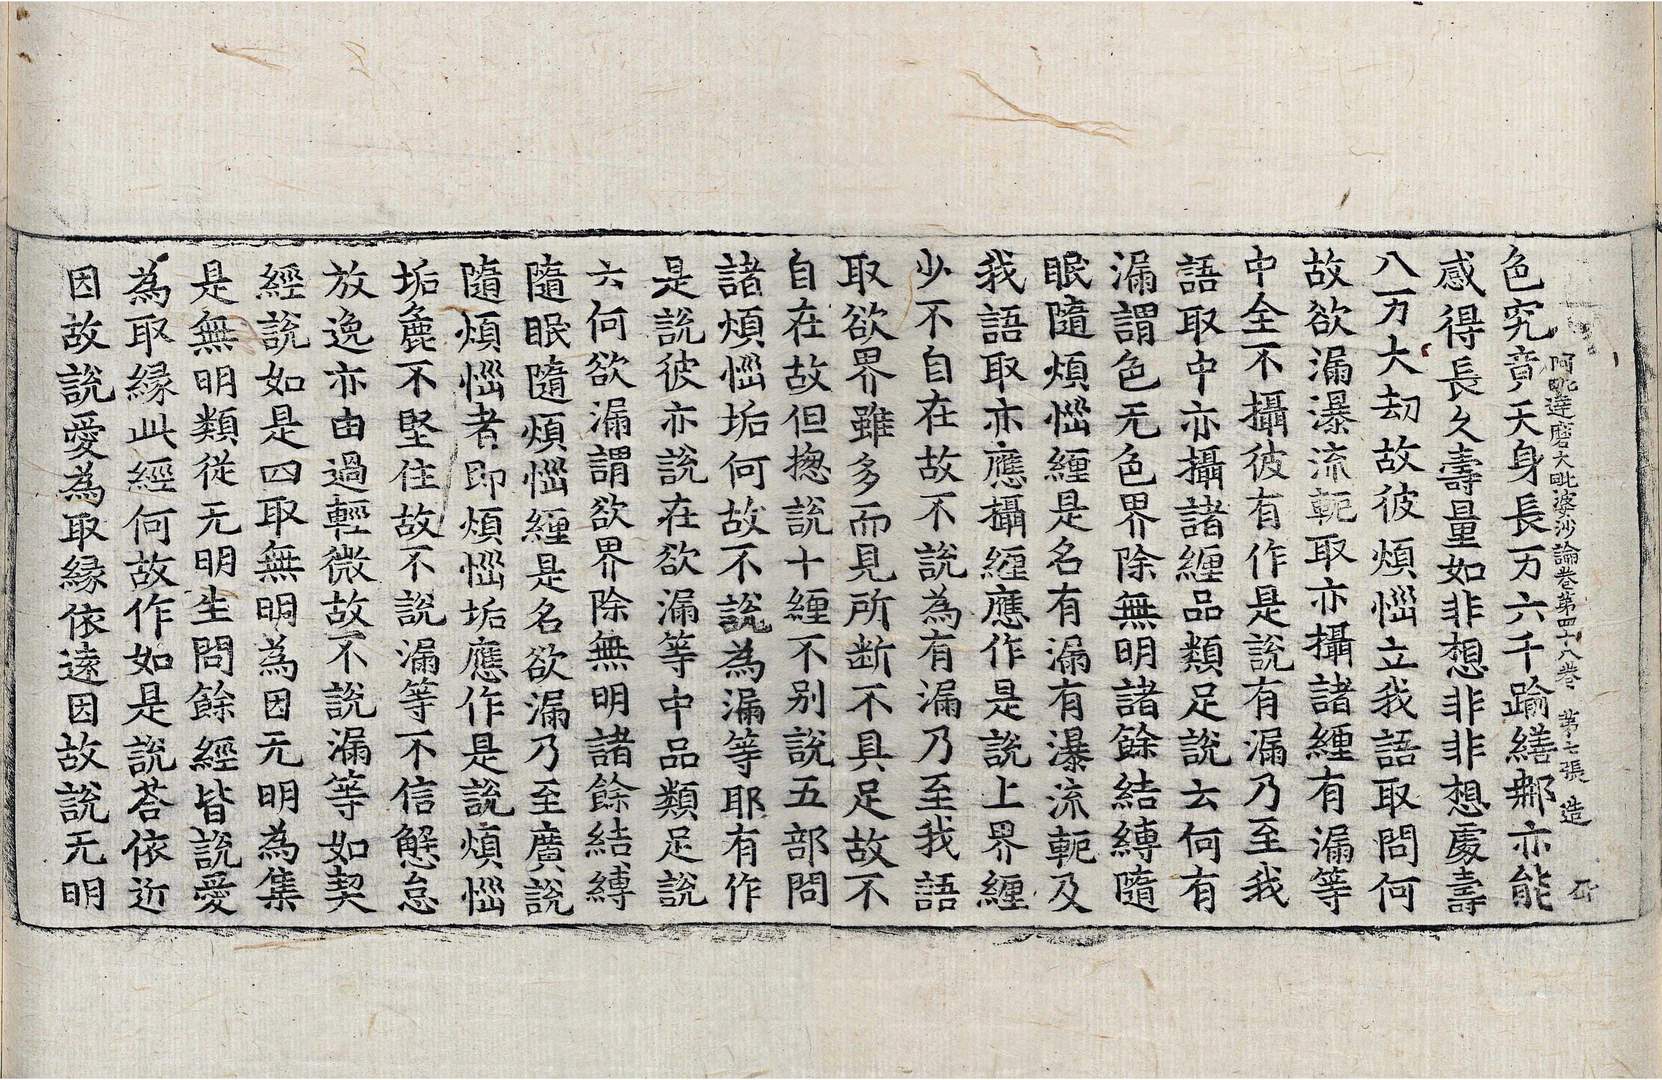 阿毗達磨大毗婆沙論卷第四十八卷 第七張 造
色究竟天身長万六千踰繕那亦能
感得長久壽量如非想非非想處壽
八万大劫故彼煩惱立我語取問何
故欲漏瀑流軛取亦攝諸纏有漏等
中全不攝彼有作是說有漏乃至我
語取中亦攝諸纏品類足說云何有
漏謂色无色界除無明諸餘結縛隨
眠隨煩惱纏是名有漏有瀑流軛及
我語取亦應攝纏應作是說上界纏
少不自在故不說為有漏乃至我語
取欲界雖多而見所斷不具足故不
自在故但揔說十纏不別說五部問
諸煩惱垢何故不說為漏等耶有作
是說彼亦說在欲漏等中品類足說
云何欲漏謂欲界除無明諸餘結縛
隨眠隨煩惱纏是名欲漏乃至廣說
隨煩惱者即煩惱垢應作是說煩惱
垢麁不堅住故不說漏等不信懈怠
放逸亦由過輕微故不說漏等如契
經說如是四取無明為因无明為集
是無明類從无明生問餘經皆說愛
為取緣此經何故作如是說荅依近
因故說愛為取緣依遠因故說无明